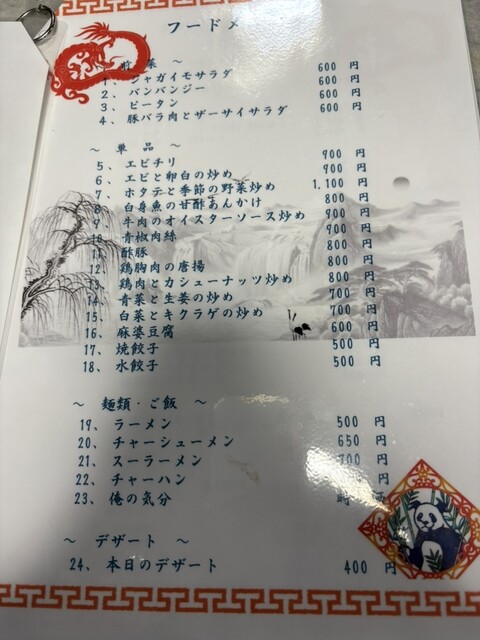 フードメ
～ 前菜 ～
1、ジャガイモサラダ 600 円
2、バンバンジー 600 円
3、ピータン 600 円
4、豚バラ肉とザーサイサラダ 600 円
～ 単 品 ～
5、エビチリ 900 円
6、エビと卵白の炒め 900 円
7、ホタテと季節の野菜炒め 1,100 円
8、白身魚の甘酢あんかけ 800 円
9、牛肉のオイスターソース炒め 900 円
10、青椒肉絲 900 円
11、酢豚 800 円
12、鶏胸肉の唐揚 800 円
13、鶏肉とカシューナッツ炒め 800 円
14、青菜と生姜の炒め 700 円
15、白菜とキクラゲの炒め 700 円
16、麻婆豆腐 600 円
17、焼餃子 500 円
18、水餃子 500 円
～ 麺類・ご飯 ～
19、ラーメン 500 円
20、チャーシューメン 650 円
21、スーラーメン 700 円
22、チャーハン 円
23、俺の気分
～ デザート ～
24、本日のデザート 400 円